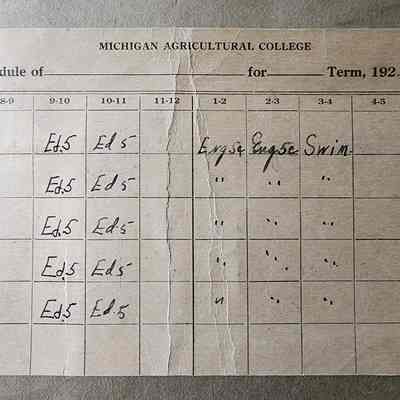 MICHIGAN AGRICULTURAL COLLEGE
dule of for Term, 192
8-9 9-10 10-11 11-12 1-2 2-3 3-4 4-5
Ed.5 Ed 5 Eng5c Eng5c Swim
Ed.5 Ed 5 " " "
Ed.5 Ed.5 " " "
Ed.5 Ed5 " " "
Ed.5 Ed.5 " " "